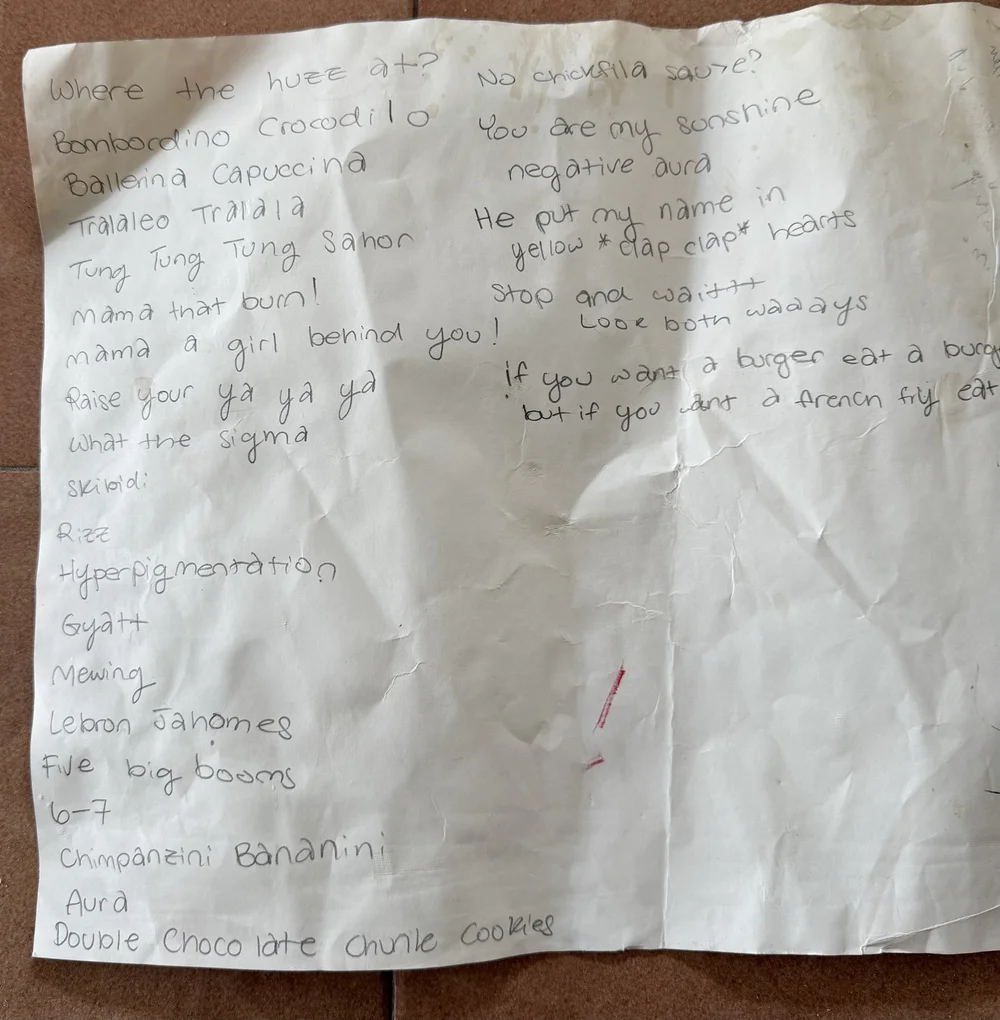 Where the huzz at?
Bombordino Crocodilo
Ballerina Capuccina
Tralaleo Tralala
Tung Tung Tung Sahor
mama that burn!
mama a girl behind you!
Raise your ya ya ya
what the sigma
Skibidi
Rizz
Hyperpigmentation
Gyatt
Mewing
Lebron Jahomes
Five big booms
6-7
Chimpanzini Bananini
Aura
Double Chocolate Chunk Cookies
No chickfila sauce?
You are my sunshine
negative aura
He put my name in
yellow *clap clap* hearts
Stop and waitttt
Look both waaays
if you want a burger eat a burg
but if you want a french fry eat